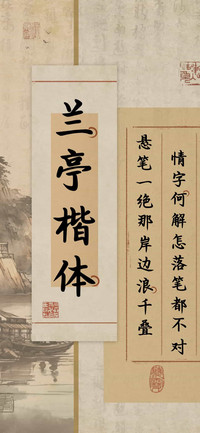 兰亭楷体
情字何解怎落笔都不对
悬笔一绝那岸边浪千叠